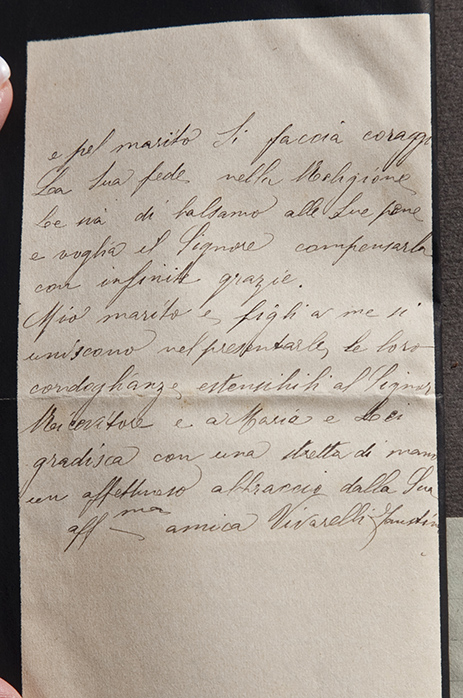 e pel marito Si faccia coraggi
La Sua fede nella Religione
Le sia di balsamo alle Sue pene
e voglia il Signore compensarla
con infinite grazie.
Mio marito e figli a me si
uniscono nel presentarle, le loro
condoglianze, estensibili al Signor
e a Maria e Lei
gradisca con una stretta di mano
un affettuoso abbraccio dalla Sua
aff ma amica Vivarelli Faustin